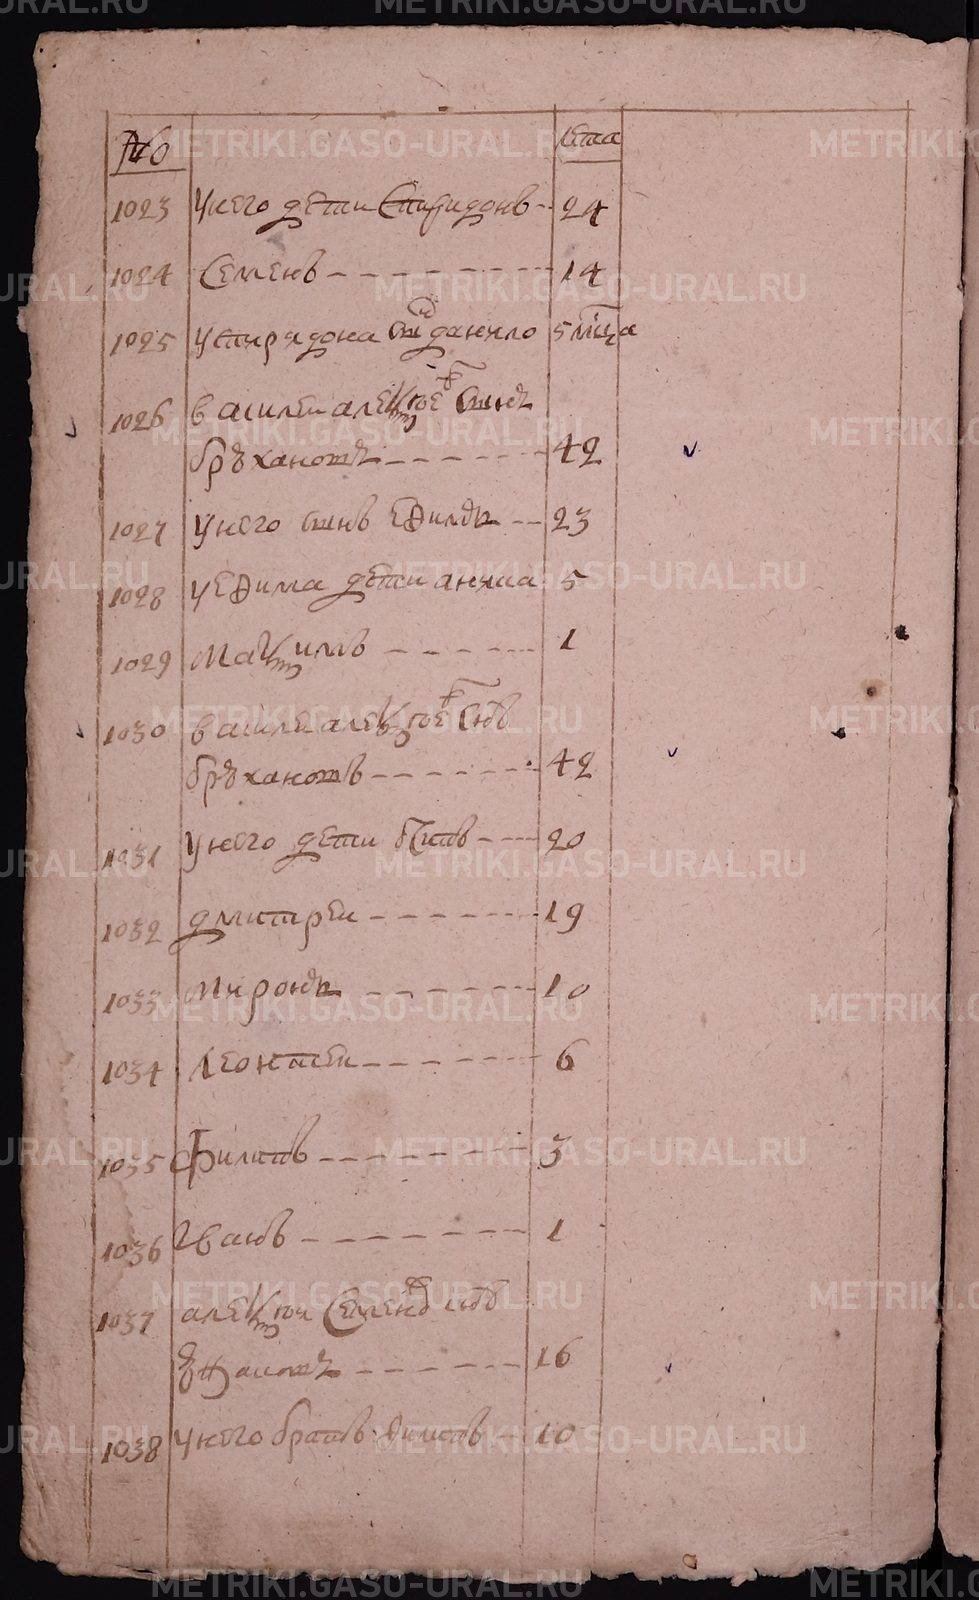 № лета
1023 У него дети Спиридонъ 24
1024 Семенъ 14
1025 У Спиридона сынъ данило 5 мца
1026 василеи алеѯѣевъ сынъ
бръхановъ 42
1027 У него сынъ Ефимъ 23
1028 У Ефима дети аника 5
1029 Маѯимъ 1
1030 василеи алеѯѣевъ снъ
бръхановъ 42
1031 У него дети 20
1032 дмитреи 19
1033 Миронъ 10
1034 леонтеи 6
1035 Филипъ 3
1036 Иванъ 1
1037 алеѯѣи Семеновъ снъ
16
1038 У него братъ 10
METRIKI.GASO-URAL.RU